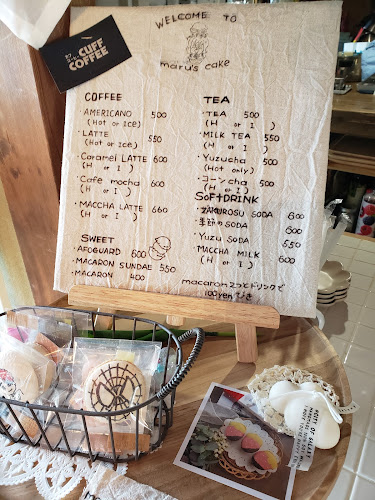 WELCOME TO
maru's cake
CUFF
COFFEE
COFFEE
・AMERICANO 500
(Hot or Ice)
・LATTE 550
(Hot or Ice)
・Caramel LATTE 600
(H or I )
・Cafe mocha 600
(H or I )
・MACCHA LATTE 660
(H or I )
SWEET
・AFOGUARD 600
・MACARON SUNDAE 550
・MACARON 400
TEA
・TEA 500
(H or I )
・MILK TEA 550
(H or I )
・Yuzucha 500
(Hot only)
・コーンcha 500
(H or I )
SOFTDRINK
・ZAKUROSU SODA 600
・季節のSODA 600
・Yuzu SODA 550
・MACCHA MILK 600
(H or I )
macaron2つとドリンクで
100yenびき